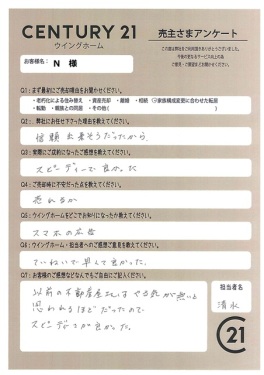 CENTURY 21
ウイングホーム
売主さまアンケート
お客様名: N 様
Q1:まず最初にご売却理由をお聞かせください。
・老朽化による住み替え ・資産売却 ・離婚 ・相続 ・家族構成変更に合わせた転居
・転勤 ・親族との同居 ・その他(
Q2:弊社にお任せ下さった理由を教えてください。
信頼出来そうだったから
Q3:実際にご成約になったご感想を教えてください。
スピーディーで良かった
Q4:ご売却時に不安だった点を教えてください。
売れるか
Q5:ウイングホームをどこでお知りになったか教えてください。
スマホの広告
Q6:ウイングホーム・担当者へのご感想ご意見を教えてください。
ていねいで早くて良かった。
Q7:お客様のご感想などなんでもご自由にご記入ください。
以前の不動産屋さんはやる気が無いと
思われるほどだったので
スピーディーさが良かった。
担当者名
清水
C21